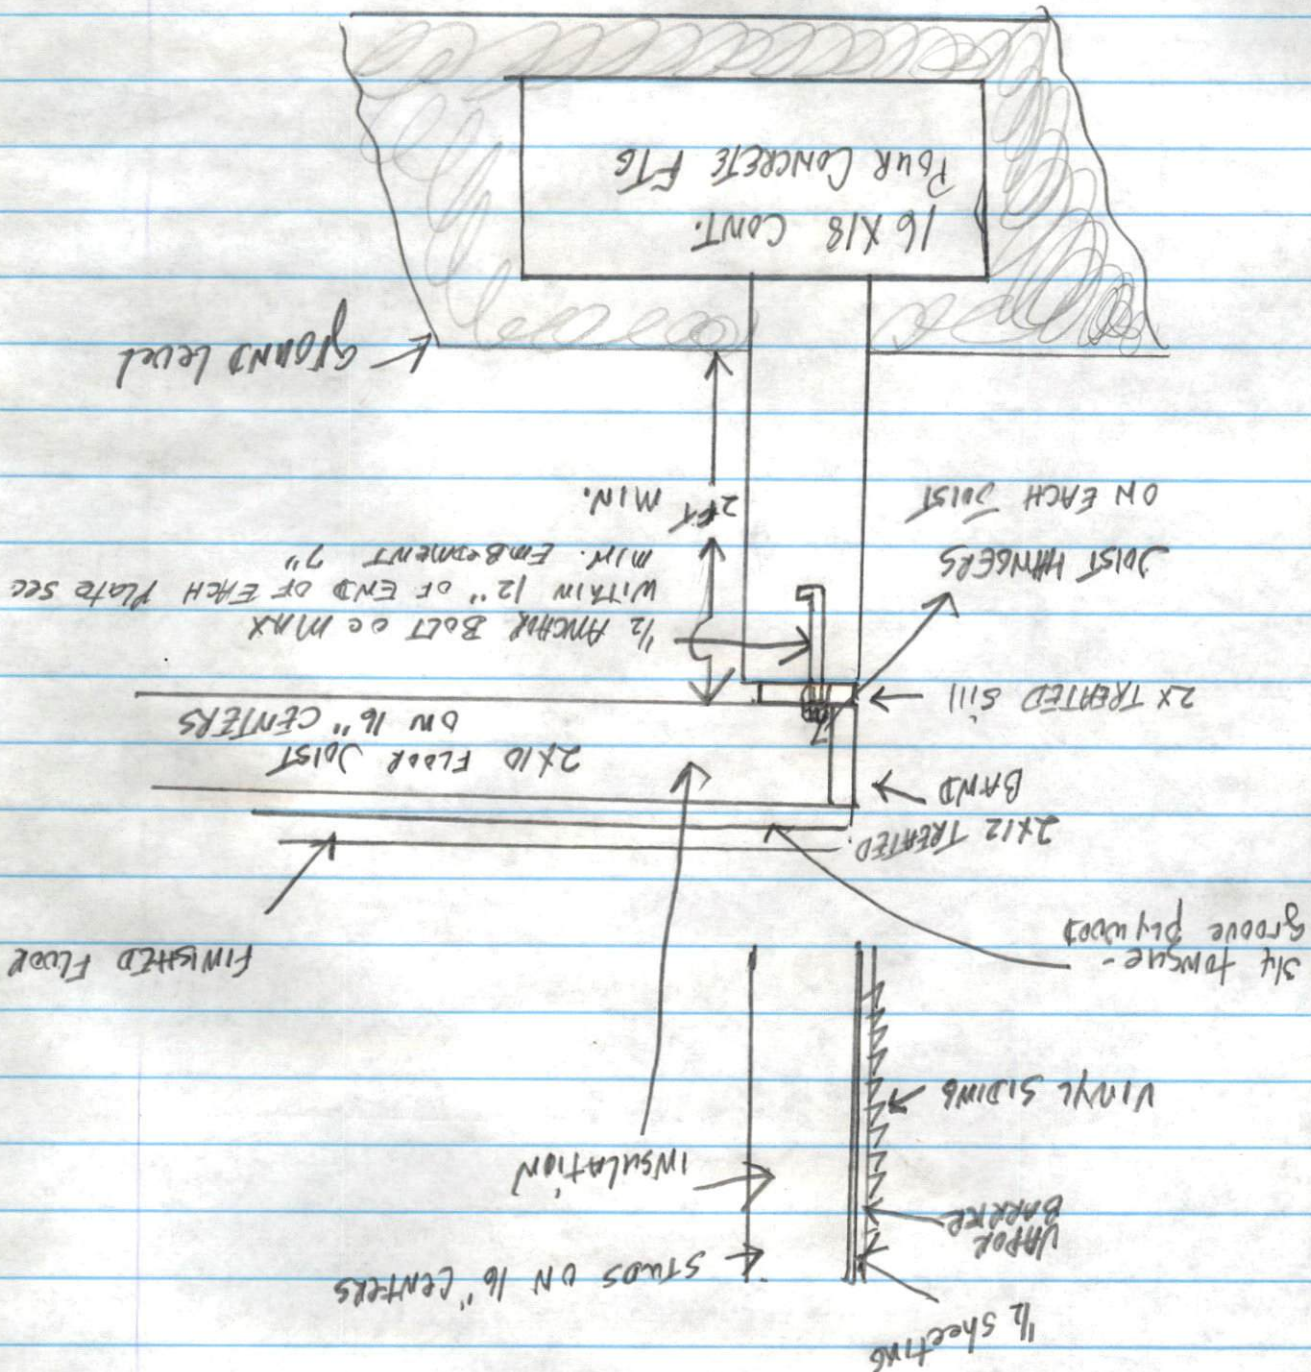 1/2 sheeting
VAPOR
BARRIER
STUDS ON 16" CENTERS
INSULATION
VINYL SIDING
3/4 tongue-
groove plywood
FINISHED FLOOR
2X12 TREATED
BAND
2X10 FLOOR JOIST
ON 16" CENTERS
2X TREATED Sill
1/2 ANCHOR BOLT oc MAX
WITHIN 12" OF END OF EACH Plate Sec
MIN. EMBEDMENT 7"
JOIST HANGERS
ON EACH JOIST
2 FT
MIN.
GROUND Level
16 X18 CONT.
POUR CONCRETE FTG